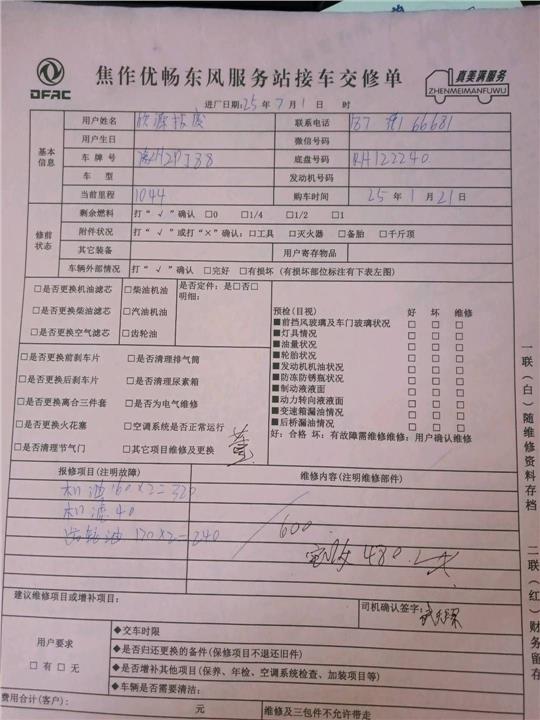 DFAC
焦作优畅东风服务站接车交修单
真美满服务
ZHENMEIMANFUWU
进厂日期:25年7月1日 时
基本信息
用户姓名 联系电话
用户生日 微信号码
车牌号 底盘号码 RH122240
车型 发动机号码
当前里程 1044 购车时间 25年1月21日
修前状态
剩余燃料 打“√”确认 □0 □1/4 □1/2 □1
附件状况 打“√”或打“×”确认:□工具 □灭火器 □备胎 □千斤顶
其它装备 用户寄存物品
车辆外部情况 打“√”确认 □完好 □有损坏(有损坏部位标注有下表左图)
□是否更换机油滤芯 □柴油机油 是否定件:是□否□
明细:
□是否更换柴油滤芯 □汽油机油
□是否更换空气滤芯 □齿轮油
□是否更换前刹车片 □是否清理排气筒
□是否更换后刹车片 □是否清理尿素箱
□是否更换离合三件套 □是否为电气维修
□是否更换火花塞 □空调系统是否正常运行
□是否清理节气门 □其它项目维修及更换
预检(目视) 好 坏 维修
■前挡风玻璃及车门玻璃状况 □ □ □
■灯具情况 □ □ □
■油量状况 □ □ □
■轮胎状况 □ □ □
■发动机机油状况 □ □ □
■防冻防锈瓶状况 □ □ □
■制动液液面 □ □ □
■动力转向液液面 □ □ □
■变速箱漏油情况 □ □ □
■后桥漏油情况 □ □ □
好:合格 坏:有故障需维修维修:用户确认维修
报修项目(注明故障) 维修内容(注明维修部件)
机油160×2=320
机滤40
齿轮油120×2=240
600
实收480
建议维修项目或增补项目:
司机确认签字:
用户要求
□有□无
◆交车时限
◆是否归还更换的备件(保修项目不退还旧件)
◆是否增补其他项目(保养、年检、空调系统检查、加装项目等)
◆车辆是否需要清洁:
费用合计(客户): 元 维修及三包件不允许带走
一联(白)随维修资料存档
二联(红)财务留存